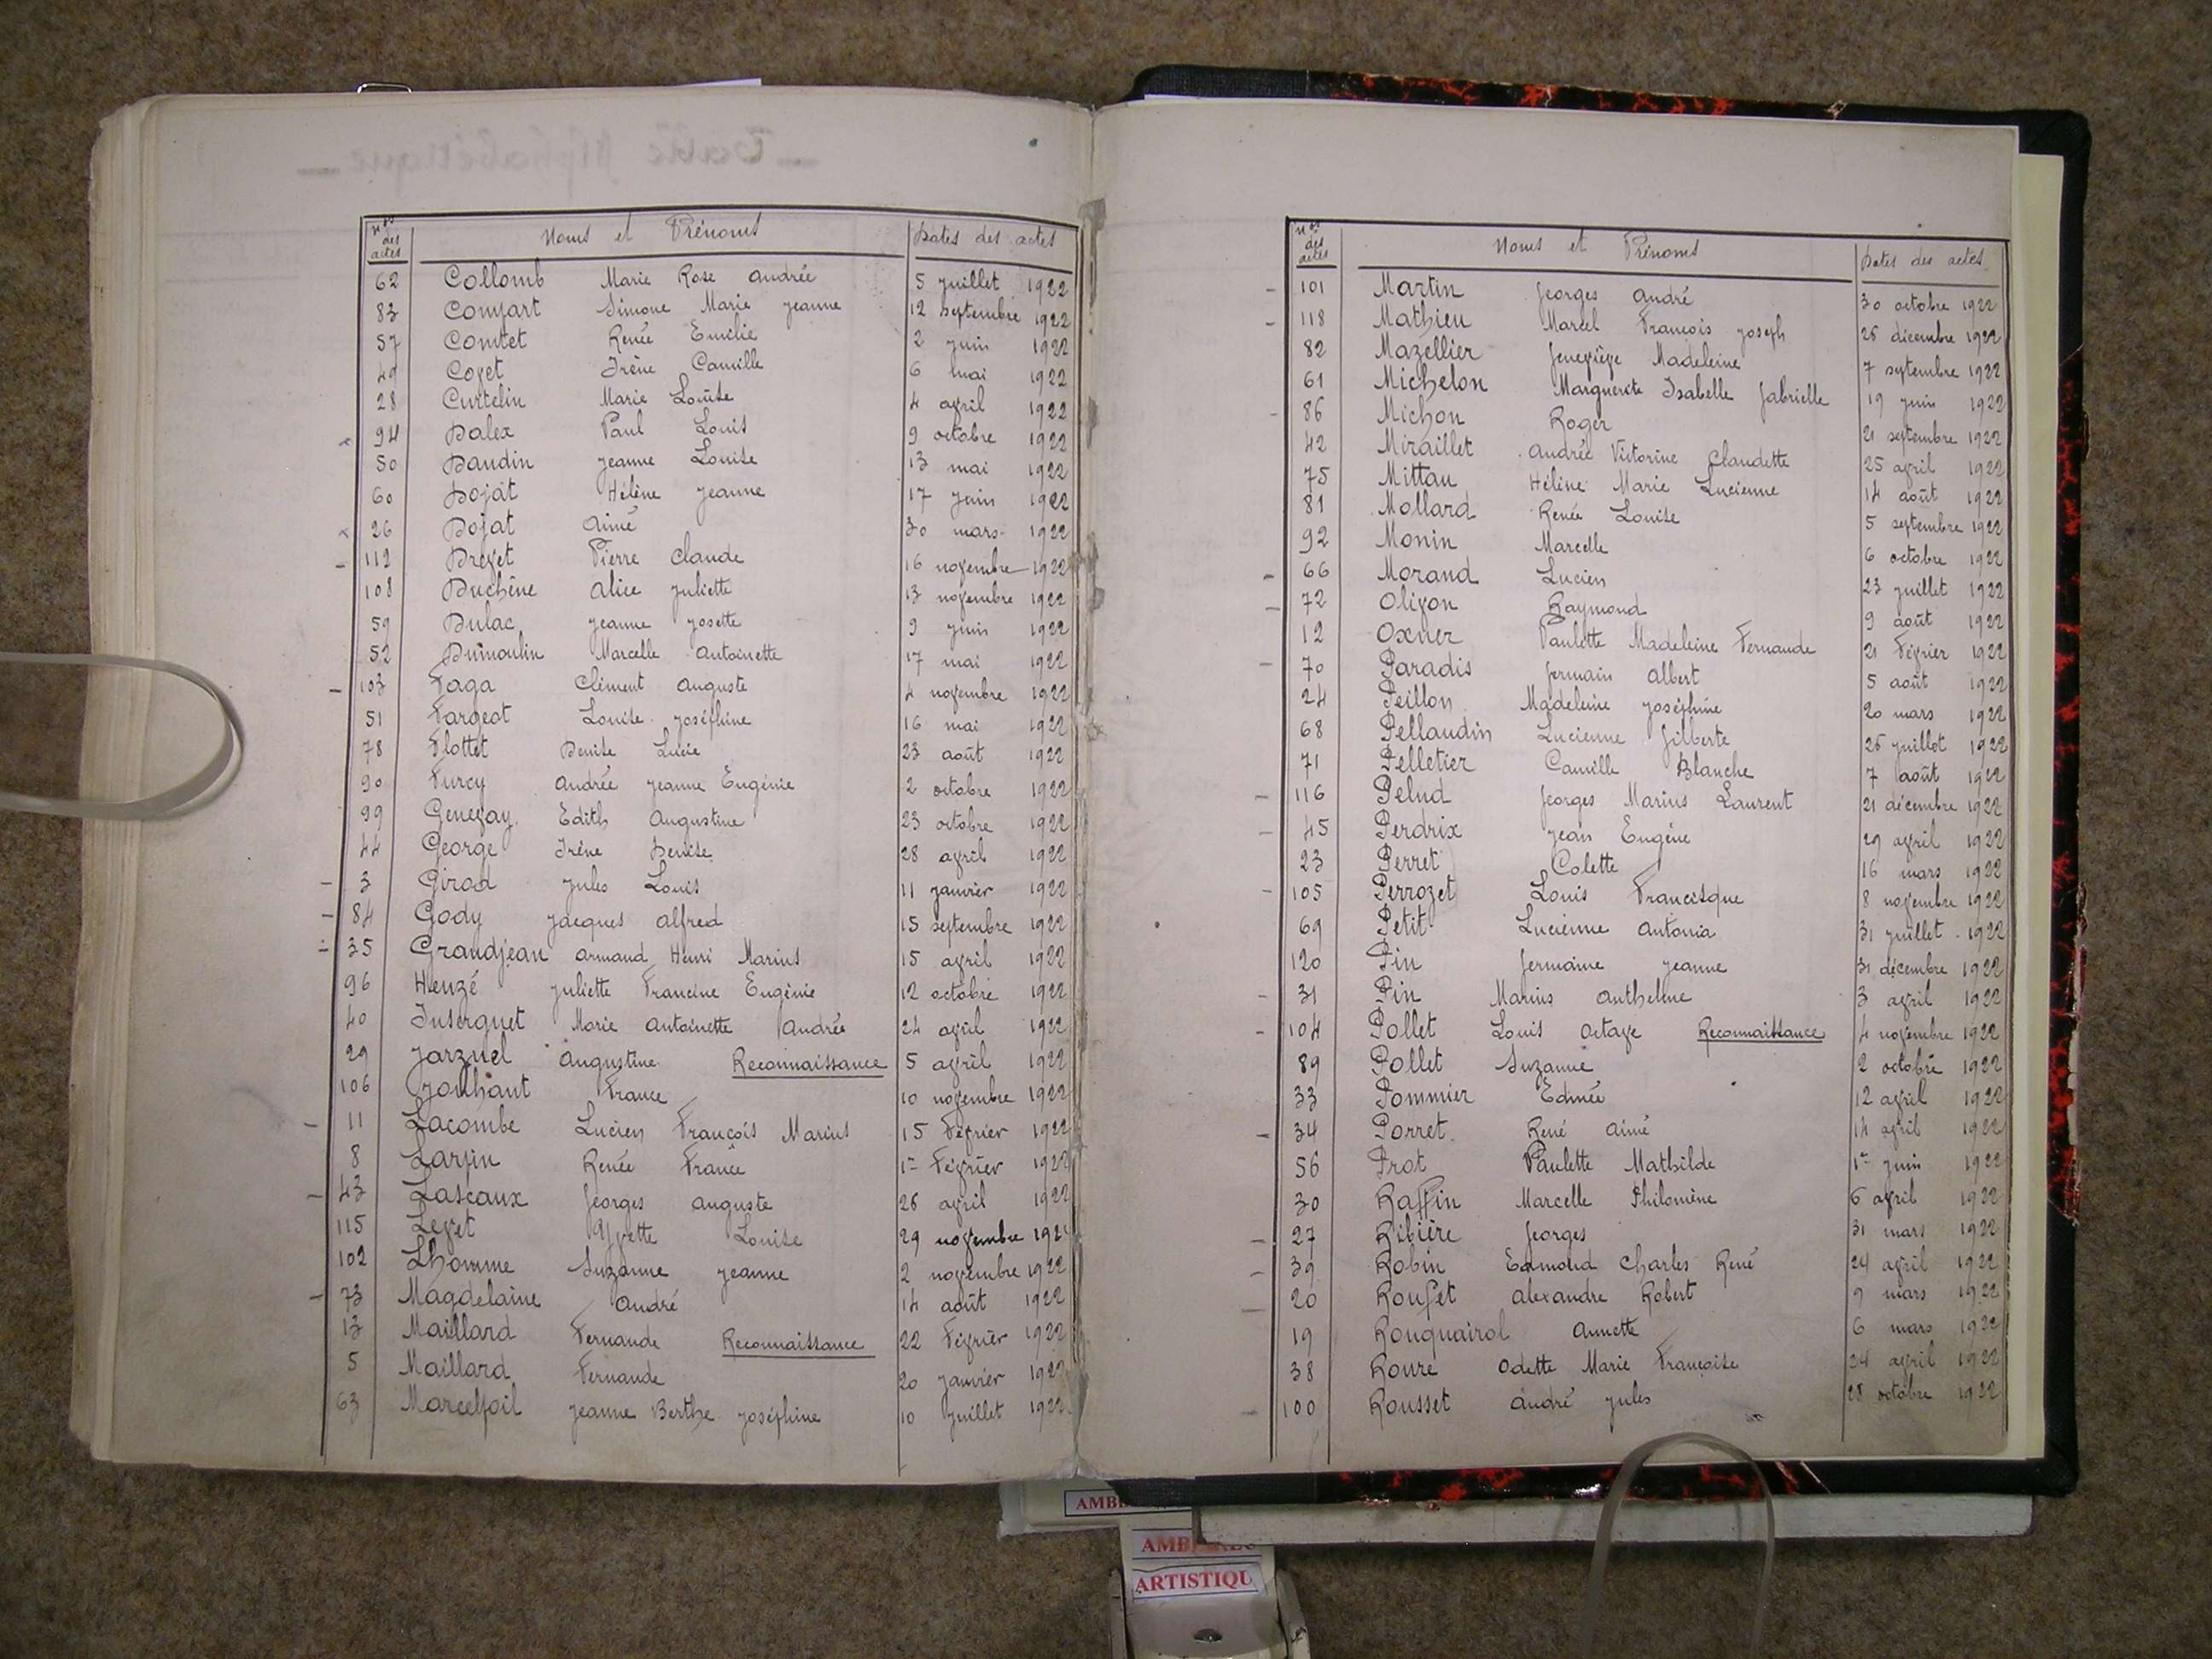 Nos des actes Noms et Prénoms Dates des actes
62 Collomb Marie Rose Andrée 5 juillet 1922
83 Compart Simone Marie Jeanne 12 septembre 1922
57 Comtet Renée Emilie 2 juin 1922
49 Covet Irène Camille 6 mai 1922
28 Curtelin Marie Louise 4 avril 1922
94 Dalex Paul Louis 9 octobre 1922
50 Daudin Jeanne Louise 13 mai 1922
60 Dojat Hélène Jeanne 17 juin 1922
26 Dojat Aimé 30 mars 1922
112 Drevet Pierre Claude 16 novembre 1922
108 Duchêne Alice Juliette 13 novembre 1922
59 Dulac Jeanne Josette 9 juin 1922
52 Dumoulin Marcelle Antoinette 17 mai 1922
103 Faga Clément Auguste 4 novembre 1922
51 Fargeot Louise Joséphine 16 mai 1922
78 Flottet Denise Lucie 23 août 1922
90 Furcy Andrée Jeanne Eugénie 2 octobre 1922
99 Genevay Edith Augustine 23 octobre 1922
44 George Irène Denise 28 avril 1922
3 Girod Jules Louis 11 janvier 1922
84 Gody Jacques Alfred 15 septembre 1922
35 Grandjean Armand Henri Marius 15 avril 1922
96 Heuzé Juliette Francine Eugénie 12 octobre 1922
40 Inserguet Marie Antoinette Andrée 24 avril 1922
29 Jarzuel Augustine Reconnaissance 5 avril 1922
106 Jouhant France 10 novembre 1922
11 Lacombe Lucien François Marius 15 Février 1922
8 Larpin Renée France 1er Février 1922
43 Lascaux Georges Auguste 26 avril 1922
115 Levet Yvette Louise 29 novembre 1922
102 Lhomme Suzanne Jeanne 2 novembre 1922
73 Magdelaine André 14 août 1922
13 Maillard Fernande Reconnaissance 22 Février 1922
5 Maillard Fernande 20 janvier 1922
63 Marcelpoil Jeanne Berthe Joséphine 10 juillet 1922
Nos des actes Noms et Prénoms Dates des actes
101 Martin Georges André 30 octobre 1922
118 Mathieu Marcel François Joseph 26 décembre 1922
82 Mazellier Geneviève Madeleine 7 septembre 1922
61 Michelon Marguerite Isabelle Gabrielle 19 juin 1922
86 Michon Roger 21 septembre 1922
42 Miraillet Andrée Victorine Claudette 25 avril 1922
75 Mittau Hélène Marie Lucienne 14 août 1922
81 Mollard Renée Louise 5 septembre 1922
92 Monin Marcelle 6 octobre 1922
66 Morand Lucien 23 juillet 1922
72 Olivon Raymond 9 août 1922
12 Oxner Paulette Madeleine Fernande 21 Février 1922
70 Paradis Germain Albert 5 août 1922
24 Peillon Madeleine Joséphine 20 mars 1922
68 Pellaudin Lucienne Gilberte 26 juillet 1922
71 Pelletier Camille Blanche 7 août 1922
116 Pelud Georges Marius Laurent 21 décembre 1922
45 Perdrix Jean Eugène 29 avril 1922
23 Perret Colette 16 mars 1922
105 Perrozet Louis Francisque 8 novembre 1922
69 Petit Lucienne Antonia 31 juillet 1922
120 Pin Germaine Jeanne 31 décembre 1922
31 Pin Marius Anthelme 3 avril 1922
104 Pollet Louis Octave Reconnaissance 4 novembre 1922
89 Pollet Suzanne 2 octobre 1922
33 Pommier Edmée 12 avril 1922
34 Porret René Aimé 14 avril 1922
56 Prot Paulette Mathilde 1er juin 1922
30 Raffin Marcelle Philomène 6 avril 1922
27 Ribière Georges 31 mars 1922
39 Robin Edmond Charles René 24 avril 1922
20 Alexandre Robert 9 mars 1922
19 Rouquairol Annette 6 mars 1922
38 Roure Odette Marie Françoise 24 avril 1922
100 Rousset André Jules 28 octobre 1922
ARTISTIQU